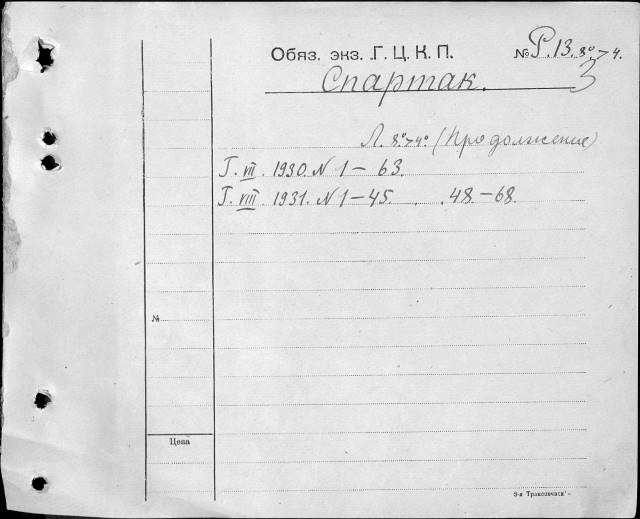 Обяз. экз. Г. Ц. К. П. № Р. 13. 8°>4.
Спартак. 3
Л. 8°>4° (Продолжение)
Г. VII. 1930. N 1 – 63.
Г. VIII. 1931. N 1 – 45. . . 48. – 68.
№
Цена
3-я Транспечати